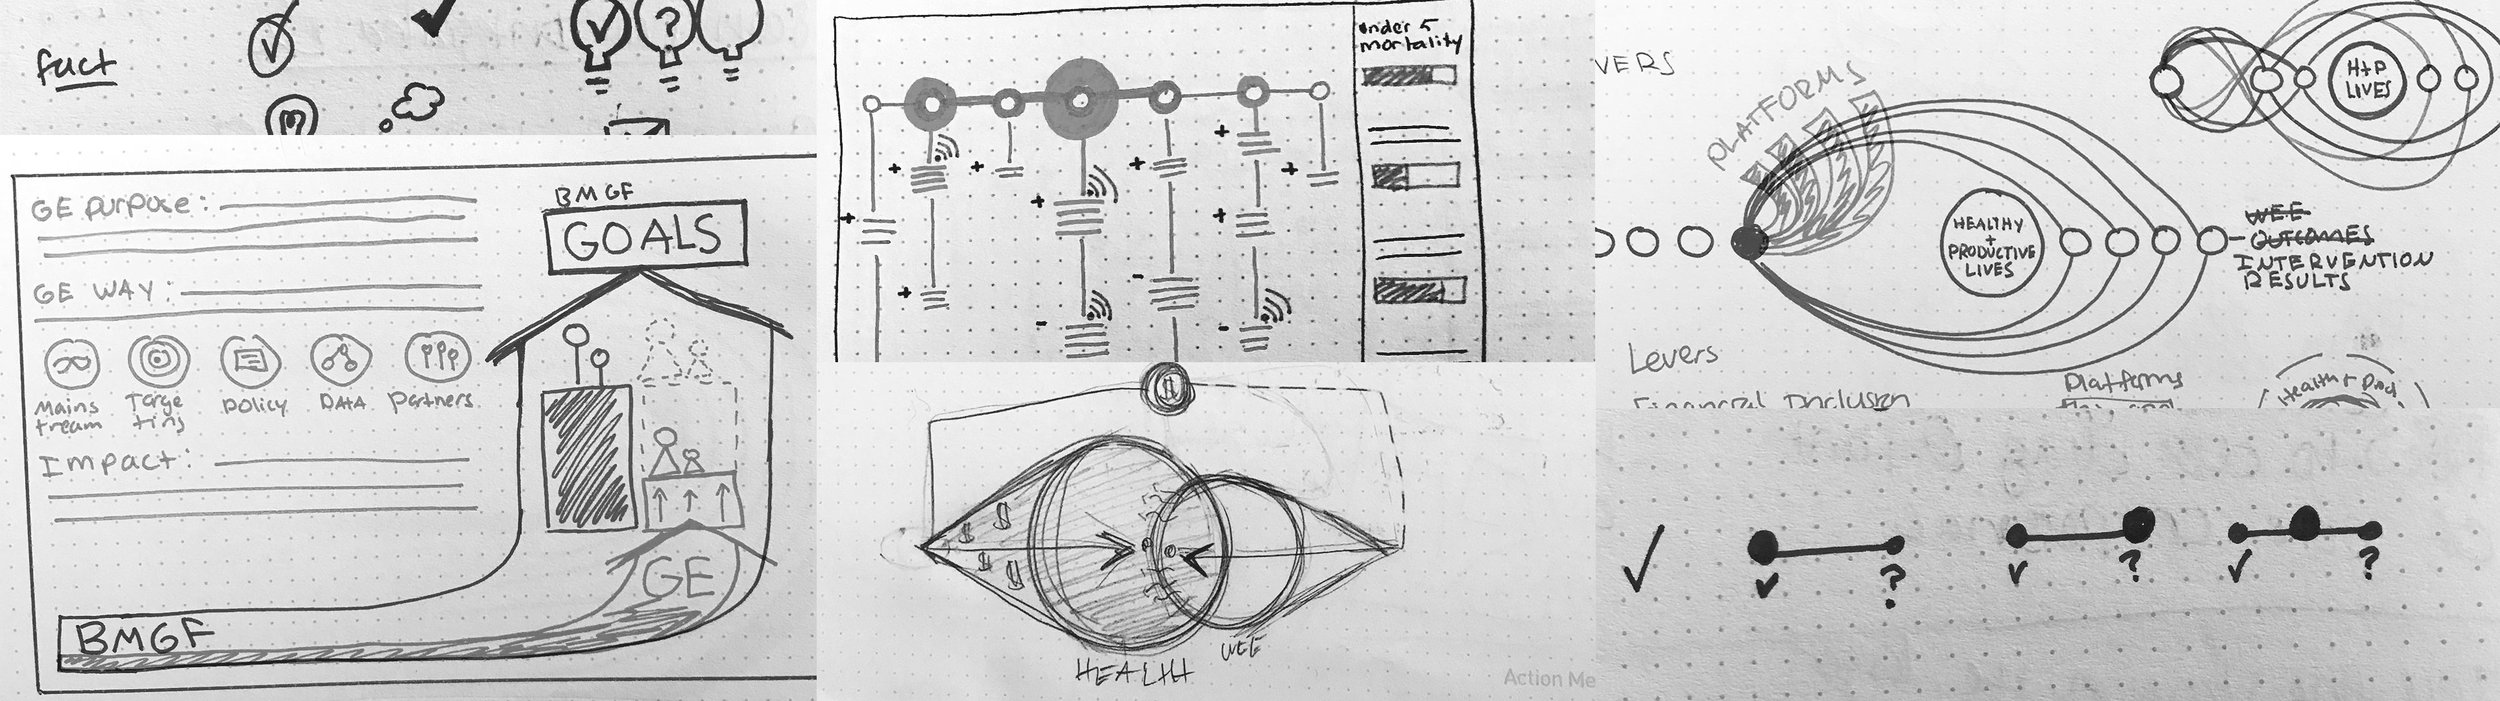 fact
?
GE purpose:
GE WAY:
Mains
tream
Targe
ting
policy
DATA
partners
Impact:
BMGF
GOALS
GE
BMGF
under 5
mortality
+
+
+
+
+
+
+
+
+
-
-
-
$
$
$
$
$
HEALTH
WEE
Action Me
VERS
PLATFORMS
H+P
LIVES
HEALTHY
+
PRODUCTIVE
LIVES
WEE
- OUTCOMES
INTERVENTION
RESULTS
Levers
Financial Inclusion
Platforms
Health + Prod
?
?
?